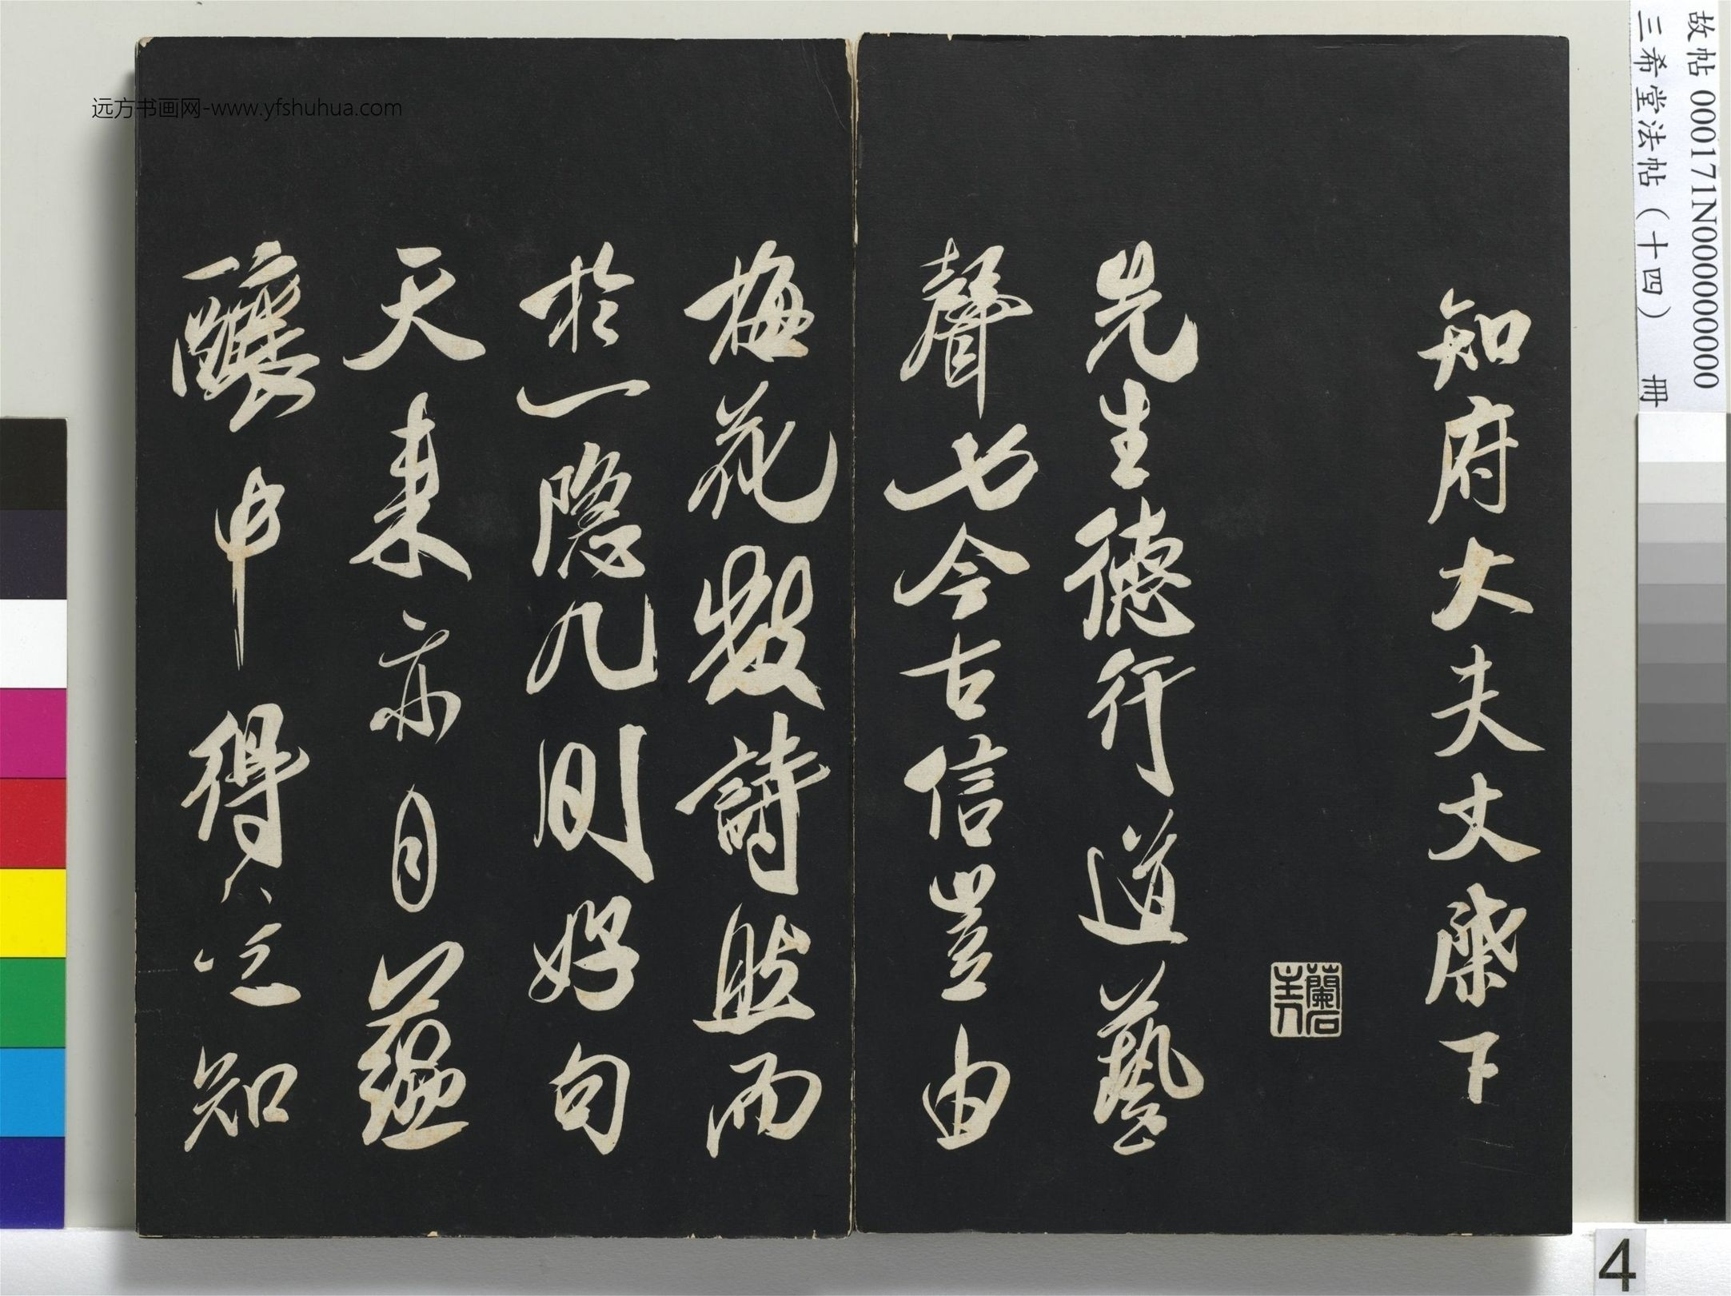 知府大夫丈棨下
先生德行道藝
聲七今古信豈由
梅花數詩然而
於一隐几間好句
天来亦自蘊
釀中得之
知
故帖 000171N000000000
三希堂法帖（十四） 冊
远方书画网-www.yfshuhua.com
4